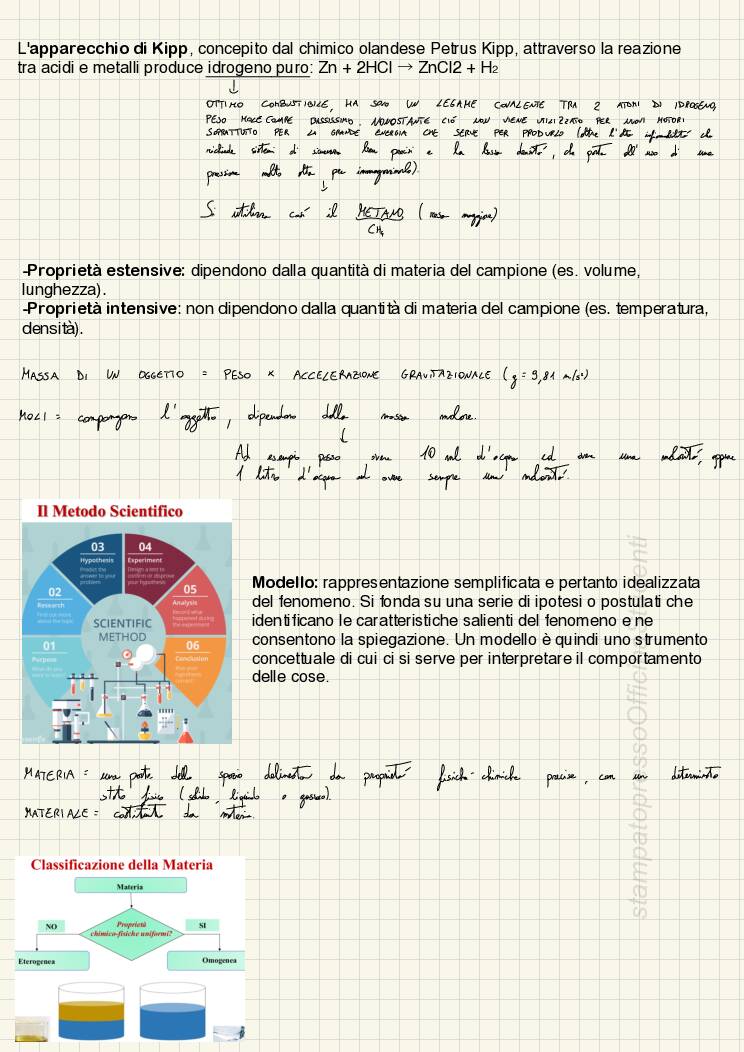 L'apparecchio di Kipp, concepito dal chimico olandese Petrus Kipp, attraverso la reazione
tra acidi e metalli produce idrogeno puro: Zn + 2HCl → ZnCl2 + H₂
↓
OTTIMO COMBUSTIBILE, HA SOLO UN LEGAME COVALENTE TRA 2 ATOMI DI IDROGENO,
PESO MOLECOLARE BASSISSIMO. NONOSTANTE CIÓ NON VIENE UTILIZZATO PER NUOVI MOTORI
SOPRATTUTTO PER LA GRANDE ENERGIA CHE SERVE PER PRODURLO (oltre l'alta che
richiede sistemi di sicurezza ben precisi e ha bassa densitá, che porta all'uso di una
pressione molto alta per immagazzinarlo).
↓
Si utilizza cosí il METANO (resa maggiore)
CH₄
-Proprietà estensive: dipendono dalla quantità di materia del campione (es. volume,
lunghezza).
-Proprietà intensive: non dipendono dalla quantità di materia del campione (es. temperatura,
densità).
MASSA DI UN OGGETTO = PESO × ACCELERAZIONE GRAVITAZIONALE (g = 9,81 m/s²)
MOLI = compongono l'oggetto, dipendono dalla massa molare.
↓
Ad esempio posso avere 10 ml d'acqua ed avere una molaritá, oppure
1 litro d'acqua ed avere sempre una molaritá.
Il Metodo Scientifico
03
Hypothesis
Predict the
answer to your
problem
04
Experiment
Design a test to
confirm or disprove
your hypothesis
02
Research
Find out more
about the topic
05
Analysis
Record what
happened during
the experiment
SCIENTIFIC
METHOD
01
Purpose
What do you
want to learn?
06
Conclusion
Was your
hypothesis
correct?
Modello: rappresentazione semplificata e pertanto idealizzata
del fenomeno. Si fonda su una serie di ipotesi o postulati che
identificano le caratteristiche salienti del fenomeno e ne
consentono la spiegazione. Un modello è quindi uno strumento
concettuale di cui ci si serve per interpretare il comportamento
delle cose.
MATERIA = una parte dello spazio delineata da proprietá fisico-chimiche precise, con un determinato
stato fisico (solido, liquido o gassoso).
MATERIALE = costituito da materia.
Classificazione della Materia
Materia
NO
Proprietà
chimico-fisiche uniformi?
SI
Eterogenea
Omogenea